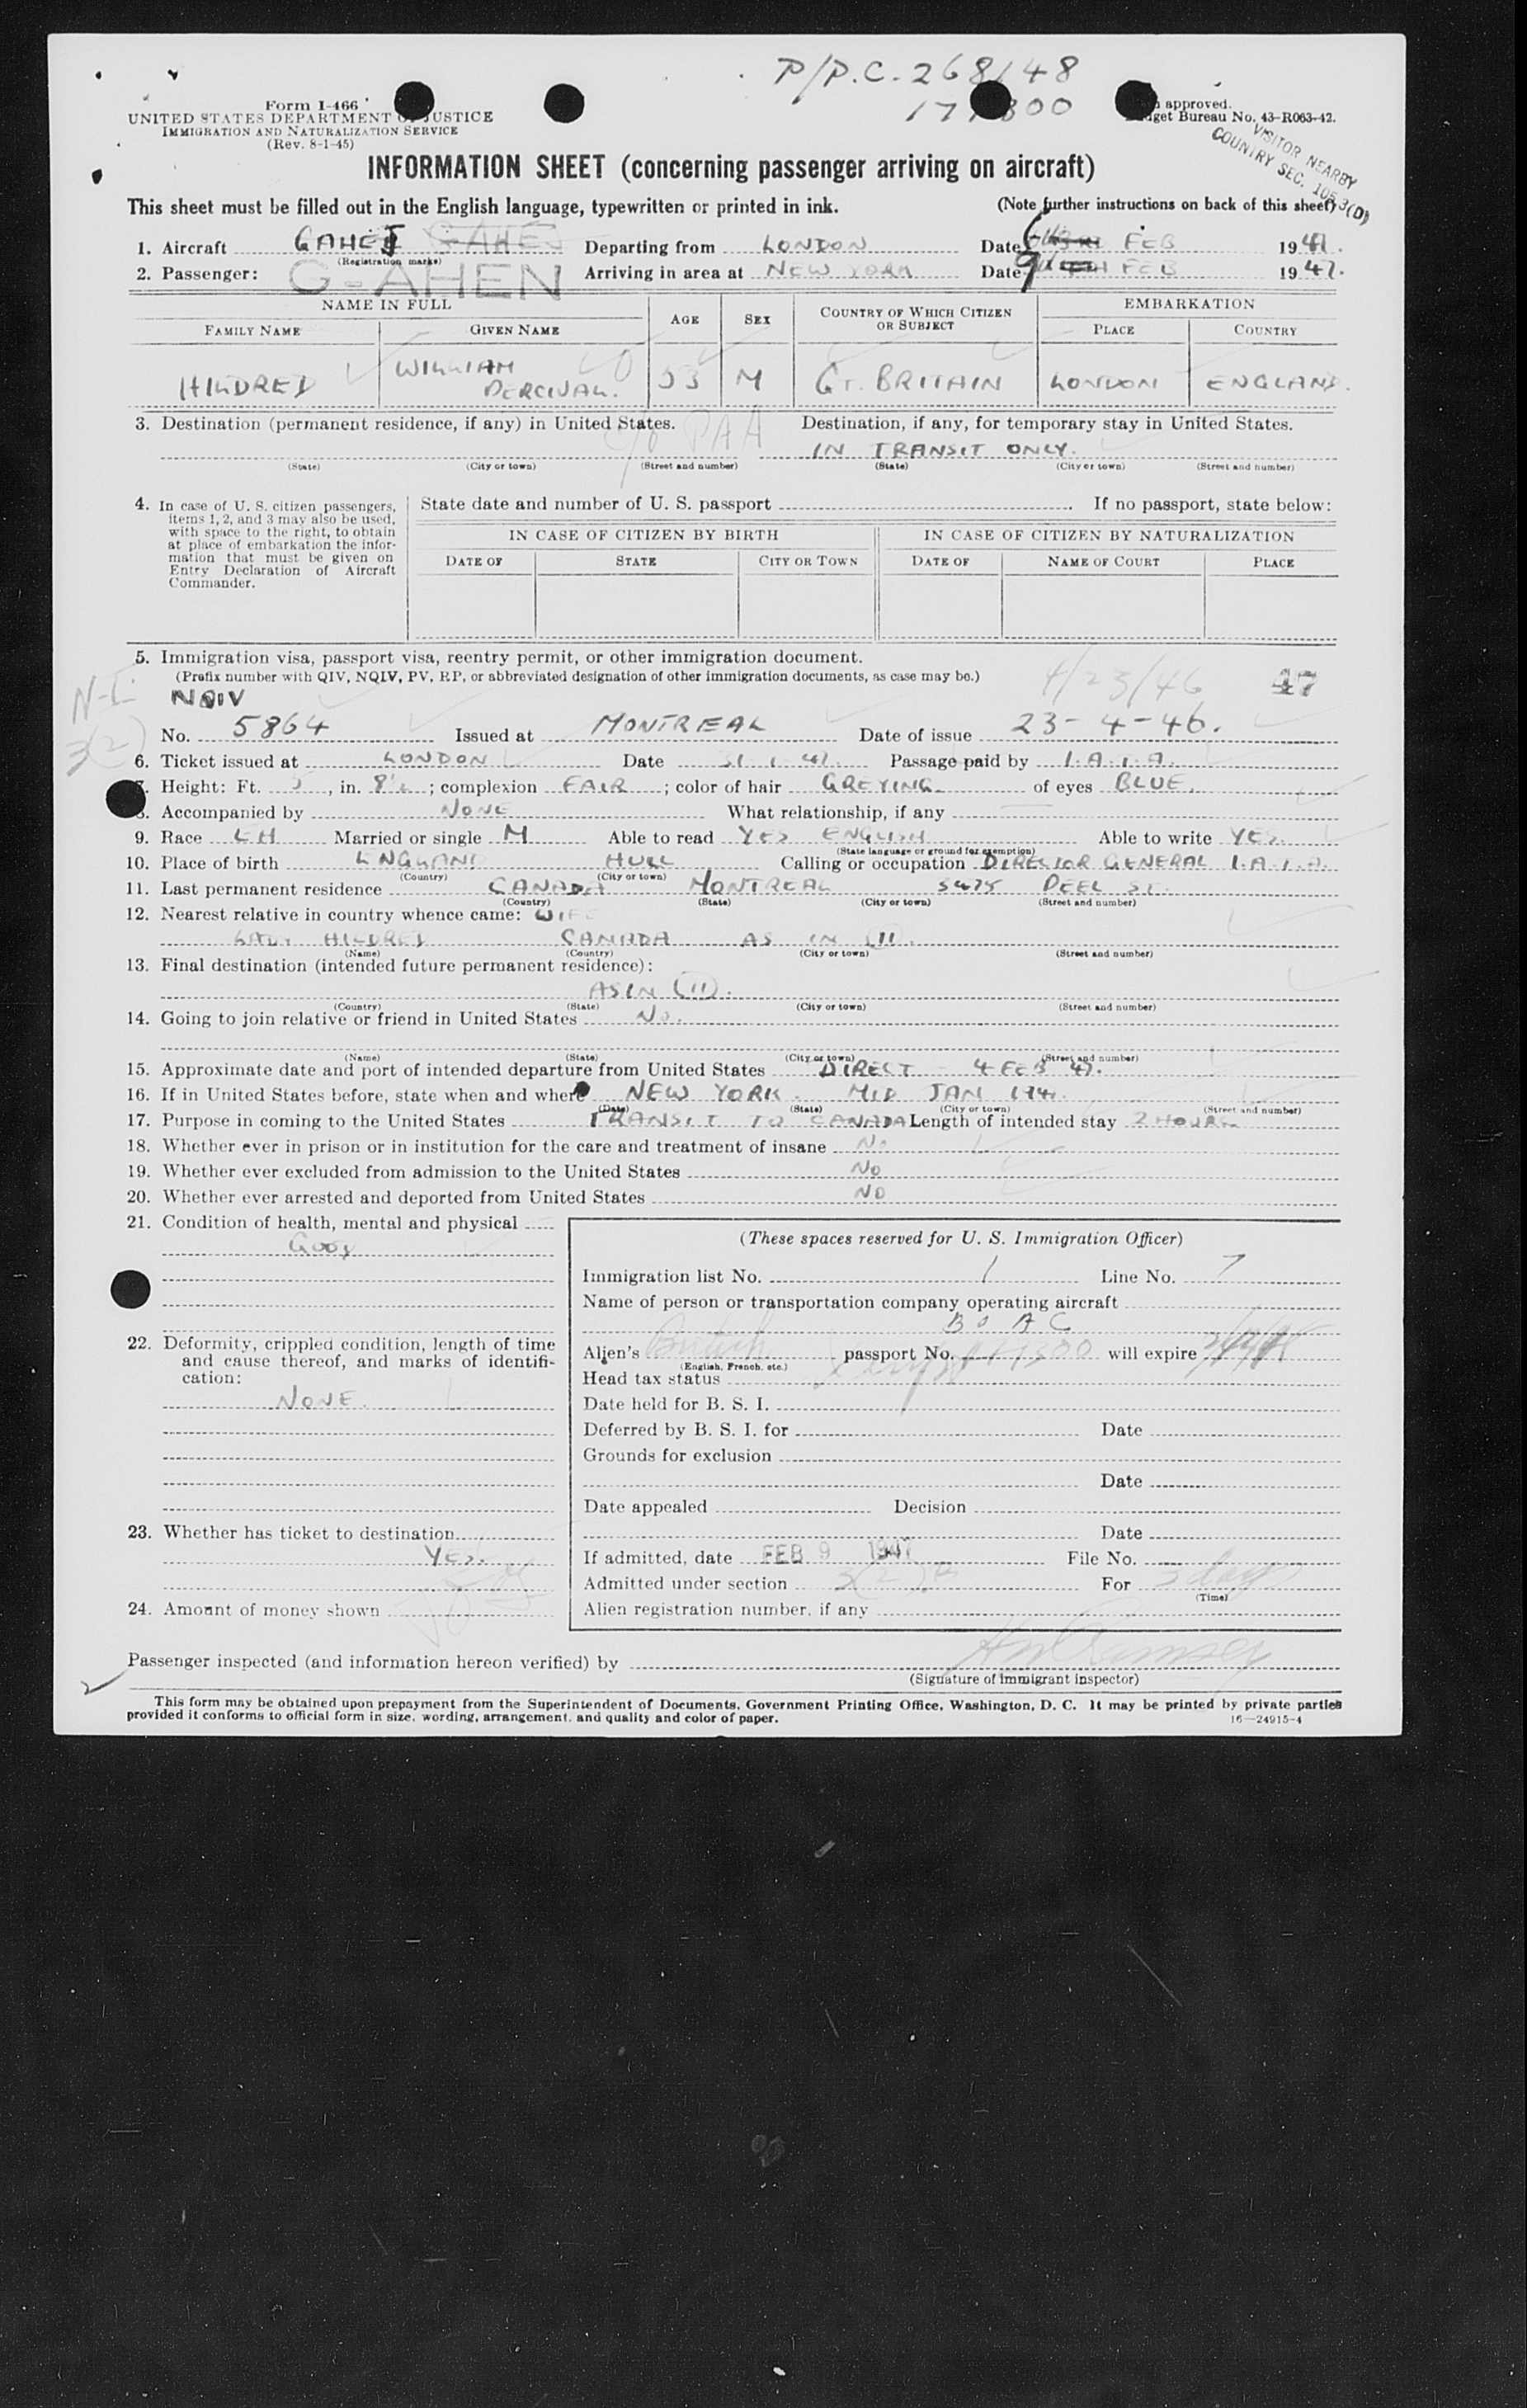 P/P.C. 268/48
Form I-466
UNITED STATES DEPARTMENT OF JUSTICE
IMMIGRATION AND NATURALIZATION SERVICE
(Rev. 8-1-45)
approved.
Budget Bureau No. 43-R063-42.
VISITOR NEARBY
COUNTRY SEC.
INFORMATION SHEET (concerning passenger arriving on aircraft)
This sheet must be filled out in the English language, typewritten or printed in ink. (Note further instructions on back of this sheet)
1. Aircraft Departing from LONDON Date FEB 1947.
(Registration marks)
2. Passenger: G-AHEN Arriving in area at NEW YORK Date 9 FEB 1947.
NAME IN FULL AGE SEX COUNTRY OF WHICH CITIZEN OR SUBJECT EMBARKATION
FAMILY NAME GIVEN NAME PLACE COUNTRY
HILDRED WILLIAM PERCIVAL. 53 M GT. BRITAIN LONDON ENGLAND.
3. Destination (permanent residence, if any) in United States. Destination, if any, for temporary stay in United States.
c/o PAA
IN TRANSIT ONLY.
(State) (City or town) (Street and number) (State) (City or town) (Street and number)
4. In case of U. S. citizen passengers, items 1, 2, and 3 may also be used, with space to the right, to obtain at place of embarkation the information that must be given on Entry Declaration of Aircraft Commander.
State date and number of U. S. passport If no passport, state below:
IN CASE OF CITIZEN BY BIRTH IN CASE OF CITIZEN BY NATURALIZATION
DATE OF STATE CITY OR TOWN DATE OF NAME OF COURT PLACE
5. Immigration visa, passport visa, reentry permit, or other immigration document.
(Prefix number with QIV, NQIV, PV, RP, or abbreviated designation of other immigration documents, as case may be.)
4/23/46 47
NQIV
3(2)
No. 5864 Issued at MONTREAL Date of issue 23-4-46.
6. Ticket issued at LONDON Date 31 1 47. Passage paid by I.A.T.A.
7. Height: Ft. 5, in. 8½; complexion FAIR; color of hair GREYING of eyes BLUE.
8. Accompanied by NONE What relationship, if any
9. Race EH Married or single M Able to read YES ENGLISH Able to write YES.
(State language or ground for exemption)
10. Place of birth ENGLAND HULL Calling or occupation DIRECTOR GENERAL I.A.T.A.
(Country) (City or town)
11. Last permanent residence CANADA MONTREAL 3475 PEEL ST.
(Country) (State) (City or town) (Street and number)
12. Nearest relative in country whence came: WIFE
LADY HILDRED CANADA AS IN (11).
(Name) (Country) (City or town) (Street and number)
13. Final destination (intended future permanent residence):
AS IN (11).
(Country) (State) (City or town) (Street and number)
14. Going to join relative or friend in United States No.
(Name) (State) (City or town) (Street and number)
15. Approximate date and port of intended departure from United States DIRECT 4 FEB 47.
16. If in United States before, state when and where NEW YORK. MID JAN
(Date) (State) (City or town) (Street and number)
17. Purpose in coming to the United States TRANSIT TO CANADA Length of intended stay 2 HOURS
18. Whether ever in prison or in institution for the care and treatment of insane No
19. Whether ever excluded from admission to the United States No
20. Whether ever arrested and deported from United States NO
21. Condition of health, mental and physical
Good
22. Deformity, crippled condition, length of time and cause thereof, and marks of identification:
NONE.
23. Whether has ticket to destination
Yes.
24. Amount of money shown
(These spaces reserved for U. S. Immigration Officer)
Immigration list No. 1 Line No. 7
Name of person or transportation company operating aircraft
BOAC
Alien's British passport No. will expire
(English, French, etc.)
Head tax status
Date held for B. S. I.
Deferred by B. S. I. for Date
Grounds for exclusion
Date
Date appealed Decision
Date
If admitted, date FEB 9 1947 File No.
Admitted under section 3(2) For 3 days
(Time)
Alien registration number, if any
Passenger inspected (and information hereon verified) by
(Signature of immigrant inspector)
This form may be obtained upon prepayment from the Superintendent of Documents, Government Printing Office, Washington, D. C. It may be printed by private parties
provided it conforms to official form in size, wording, arrangement, and quality and color of paper. 16—24915-4